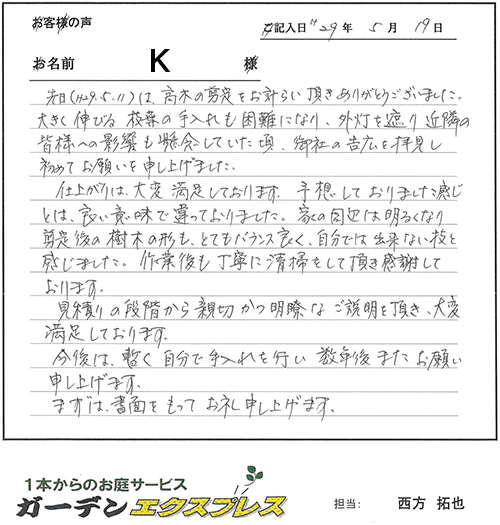 お客様の声
ご記入日 H29年 5月 19日
お名前 K 様
先日(H29.5.11)は、高木の剪定をお計らい頂きありがとうございました。
大きく伸びる枝葉の手入れも困難になり、外灯を遮り近隣の
皆様への影響も懸念していた頃、御社の広告を拝見し
初めてお願いを申し上げました。
仕上がりは、大変満足しております。予想しておりました感じ
とは、良い意味で違っておりました。家の周辺は明るくなり
剪定後の樹木の形も、とてもバランス良く、自分では出来ない技と
感じました。作業後も丁寧に清掃をして頂き感謝して
おります。
見積りの段階から親切かつ明瞭なご説明を頂き、大変
満足しております。
今後は、暫く自分で手入れを行い数年後またお願い
申し上げます。
まずは、書面をもってお礼申し上げます。
1本からのお庭サービス
ガーデンエクスプレス
担当: 西方 拓也